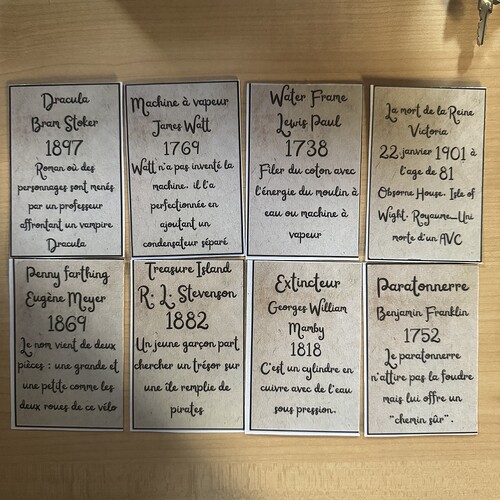 Dracula
Bram Stoker
1897
Roman où des
personnages sont menés
par un professeur
affrontant un vampire
Dracula
Machine à vapeur
James Watt
1769
Watt n'a pas inventé la
machine, il l'a
perfectionnée en
ajoutant un
condensateur séparé
Water Frame
Lewis Paul
1738
Filer du coton avec
l'énergie du moulin à
eau ou machine à
vapeur
La mort de la Reine
Victoria
22 janvier 1901 à
l'age de 81
Obsorne House, Isle of
Wight, Royaume-Uni
morte d'un AVC
Penny farthing
Eugène Meyer
1869
Le nom vient de deux
pièces : une grande et
une petite comme les
deux roues de ce vélo
Treasure Island
R. L. Stevenson
1882
Un jeune garçon part
chercher un trésor sur
une île remplie de
pirates
Extincteur
Georges William
Mamby
1818
C'est un cylindre en
cuivre avec de l'eau
sous pression.
Paratonnerre
Benjamin Franklin
1752
Le paratonnerre
n'attire pas la foudre
mais lui offre un
"chemin sûr".